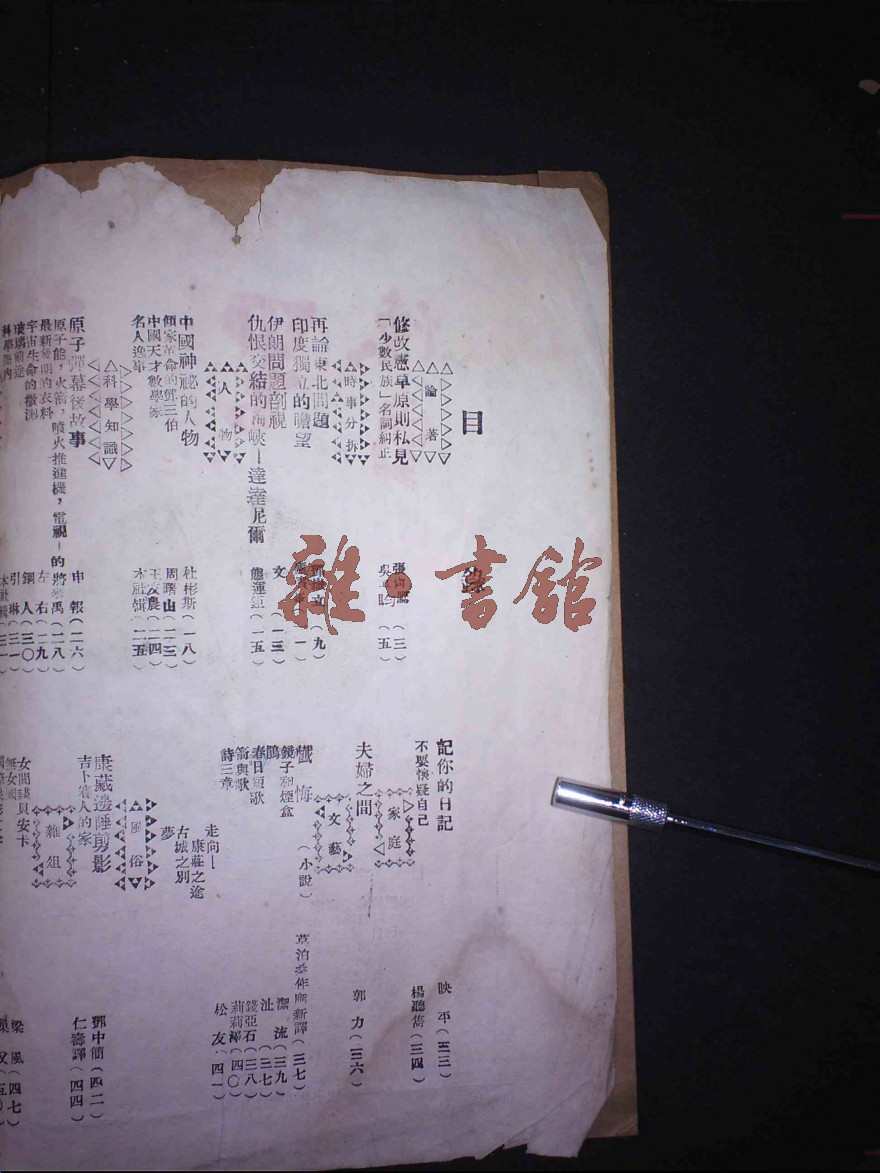 目
論著
修改憲草原則私見
（三）
「少數民族」名詞糾正
（五）
時事分拆
再論東北問題
（九）
印度獨立的瞻望
伊朗問題剖視
文
（一三）
仇恨交結的海峽—達達尼爾
熊運鉅（一五）
人物
中國神祕的人物
杜彬斯（一八）
傾家革命的鄧三伯
周曙山（二三）
中國天才數學家
王友農（二四）
名人逸事
本社輯（二五）
科學知識
原子彈幕後故事
申報（二六）
原子能，火箭，噴火推進機，電視—的將來
禹（二八）
最新發明的衣料
左右（二九）
宇宙生命的檢測
鋼人（三〇）
玻璃前途
引琳（三一）
科學國內
本社輯（三一）
記你的日記
映平（三三）
不要懷疑自己
楊聽雋（三四）
家庭
夫婦之間
郭力（三六）
文藝
懺悔（小說）
莫泊桑作
新譯（三七）
鏡子和煙盒
潔流（三九）
鵑
沚（三七）
春日短歌
錢亞石（三八）
箭與歌
莉莉澤（四〇）
詩三章
松友（四一）
走向—康莊之途
古城之別
夢
風俗
康藏邊陲剪影
鄧中簡（四二）
吉卜賽人的家
仁壽譯（四四）
雜俎
女間諜貝安卡
梁風（四七）
無女國
雜·書館